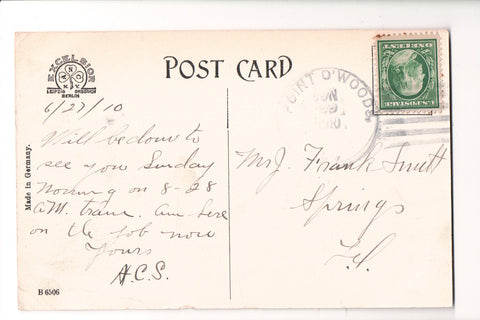 EXCELSIOR
N.Y.
LEIPZIG DRESDEN
BERLIN
POST CARD
POINT O'WOODS
1910
U.S. POSTAGE
ONE CENT
6/27/10
Will be down to
see you Sunday
morning on 8-28
A.M. train. Am here
on the job now
Yours
H.C.S.
Mr J. Frank Smith
Springs
L.I.
Made in Germany.
B 6506